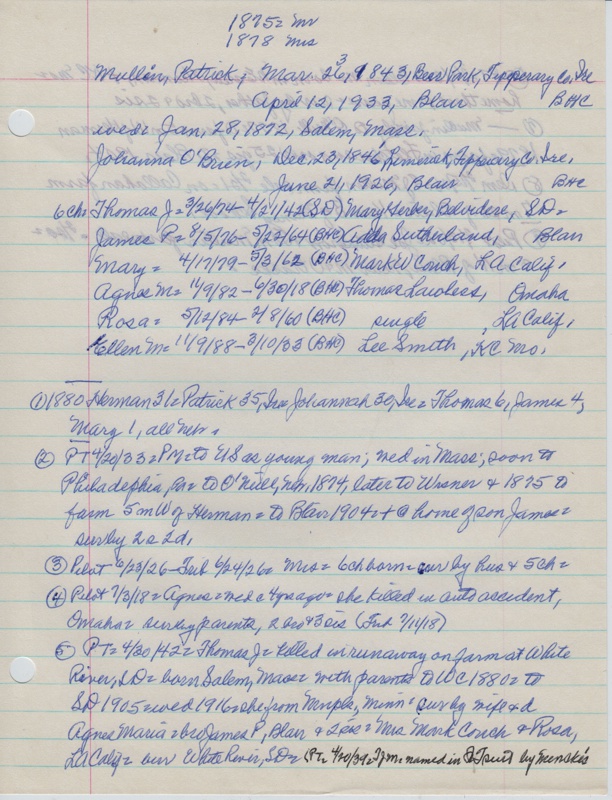 1875= Mr
1878 Mrs
Mullen, Patrick, Mar. 26, 1843, Bear Park, Tipperary Co, Ire
3
April 12, 1933, Blair BHC
wed= Jan, 28, 1872, Salem, Mass.
Johanna O'Brien, Dec, 23, 1846, Limerick, Tipperary Co, Ire,
June 21, 1926, Blair BHC
6ch= Thomas J= 3/26/74 - 4/21/42 (SD) Mary Belvidere, SD=
James P= 8/5/76 - 5/22/64 (BHC) Adda Sutherland, Blair
Mary= 4/17/79 - 5/3/62 (BHC) Mark W Couch, LA Calif,
Agnes M= 11/9/82 - 6/30/18 (BHC) Thomas Lawless, Omaha
Rosa= 5/12/84 - 2/8/60 (BHC) single , LA Calif,
Ellen M= 11/9/88 - 3/10/33 (BHC) Lee Smith, KC Mo,
① 1880 Herman 31= Patrick 35, Ire= Johannah 30, Ire= Thomas 6, James 4,
Mary 1, all Neb=
② PT 4/20/33= PM= to US as young man; wed in Mass; soon to
Philadelphia, Pa= to O'Neill, Neb, 1874, later to Wisner & 1875 to
farm 5 mW of Herman= to Blair 1904= + @ home of son James=
surv by 2s 2d,
③ Pilot 6/23/26 - Trib 6/24/26= Mrs= 6ch born= surv by hus & 5ch=
④ Pilot 7/3/18= Agnes= wed c 4 yrs ago= she killed in auto accident,
Omaha= surv by parents, 2 bro & 3 sis (Trib 7/11/18)
⑤ PT= 4/30/42= Thomas J= killed in runaway on farm at White
River, SD= born Salem, Mass= with parents to WC 1880= to
SD 1905= wed 1916= she from Minn= surv by wife & d
Agnes Maria= bro James P, Blair & 2 sis= Mrs Mark Couch & Rosa,
LA Calif= bur White River, SD= (PT= named in suit by